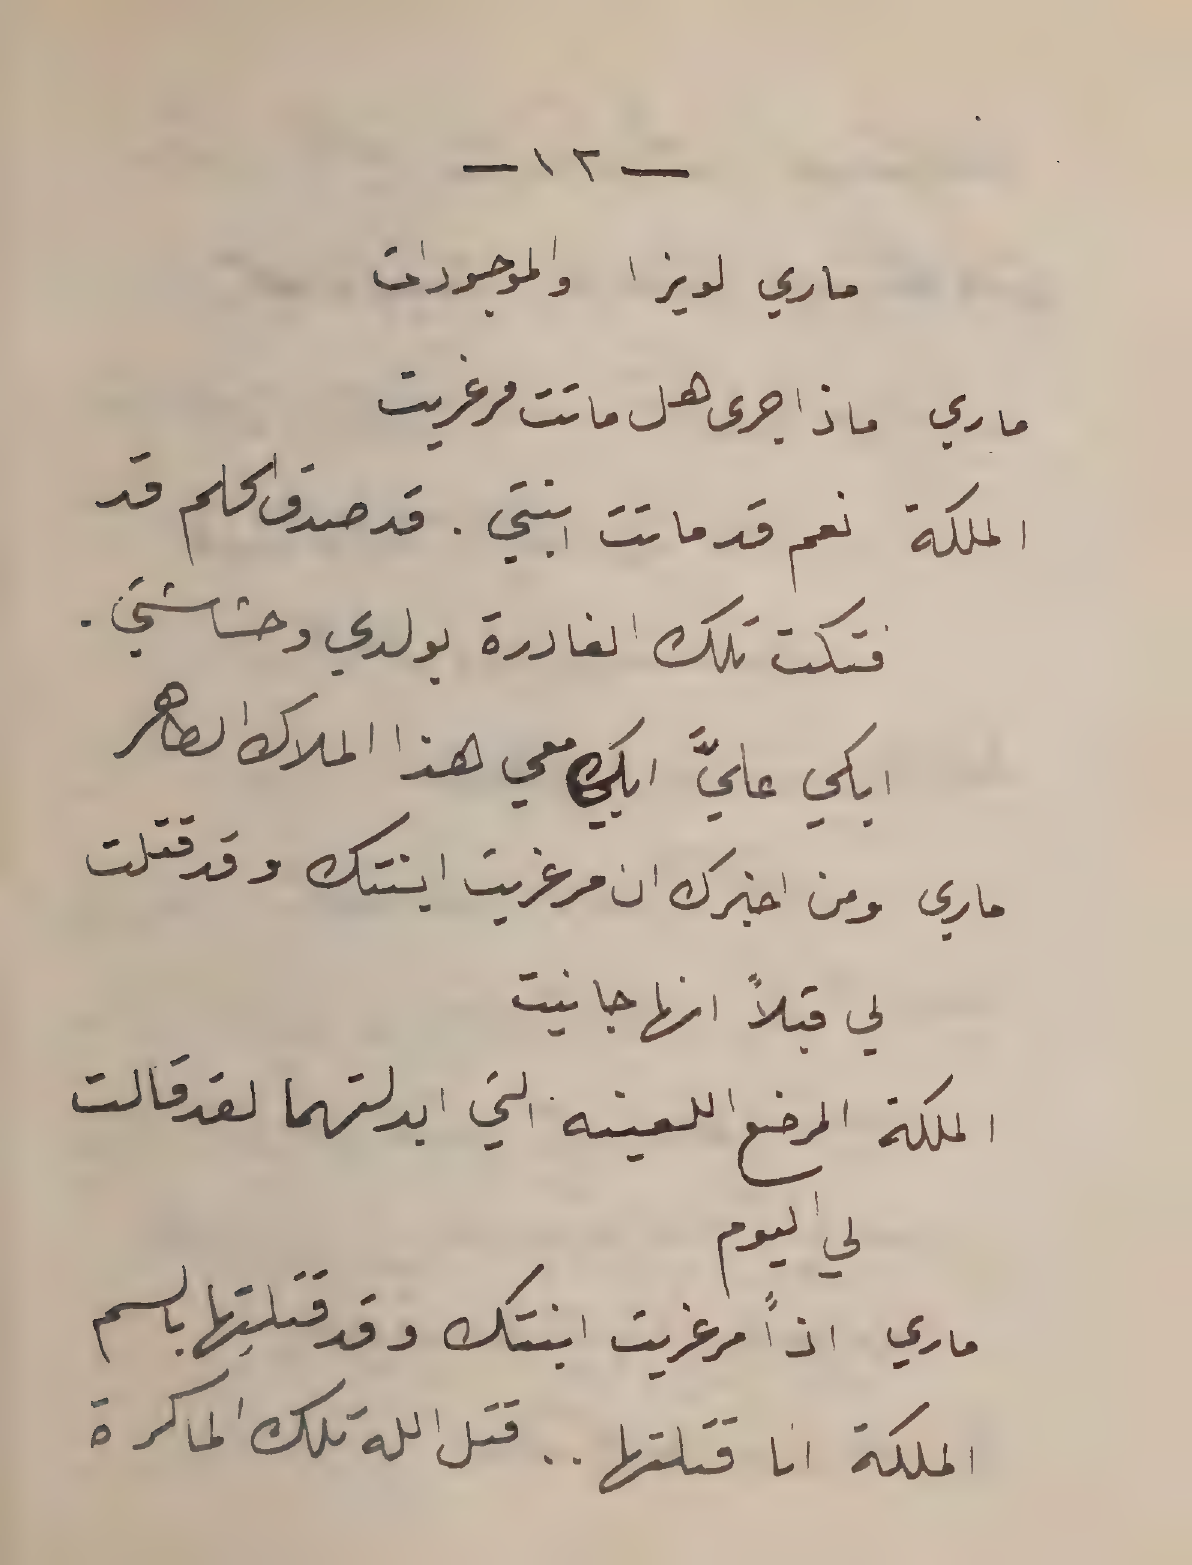 — ١٢ —
ماري لويزا والموجودات
ماري ماذا جرى هل ماتت مرغريت
الملكة نعم قد ماتت ابنتي . قد صدق الحلم قد
فتكت تلك الغادرة بولدي وحشاشتي .
ابكي عليَّ ابكي معي هذا الملاك الطاهر
ماري ومن اخبرك ان مرغريت ابنتك وقد قتلت
لي قبلاً انها جانيت
الملكة المرضع اللعينه التي ابدلتهما لقد قالت
لي اليوم
ماري اذاً مرغريت ابنتك وقد قتلتِها بالسم
الملكة انا قتلتها .. قتل الله تلك الماكرة